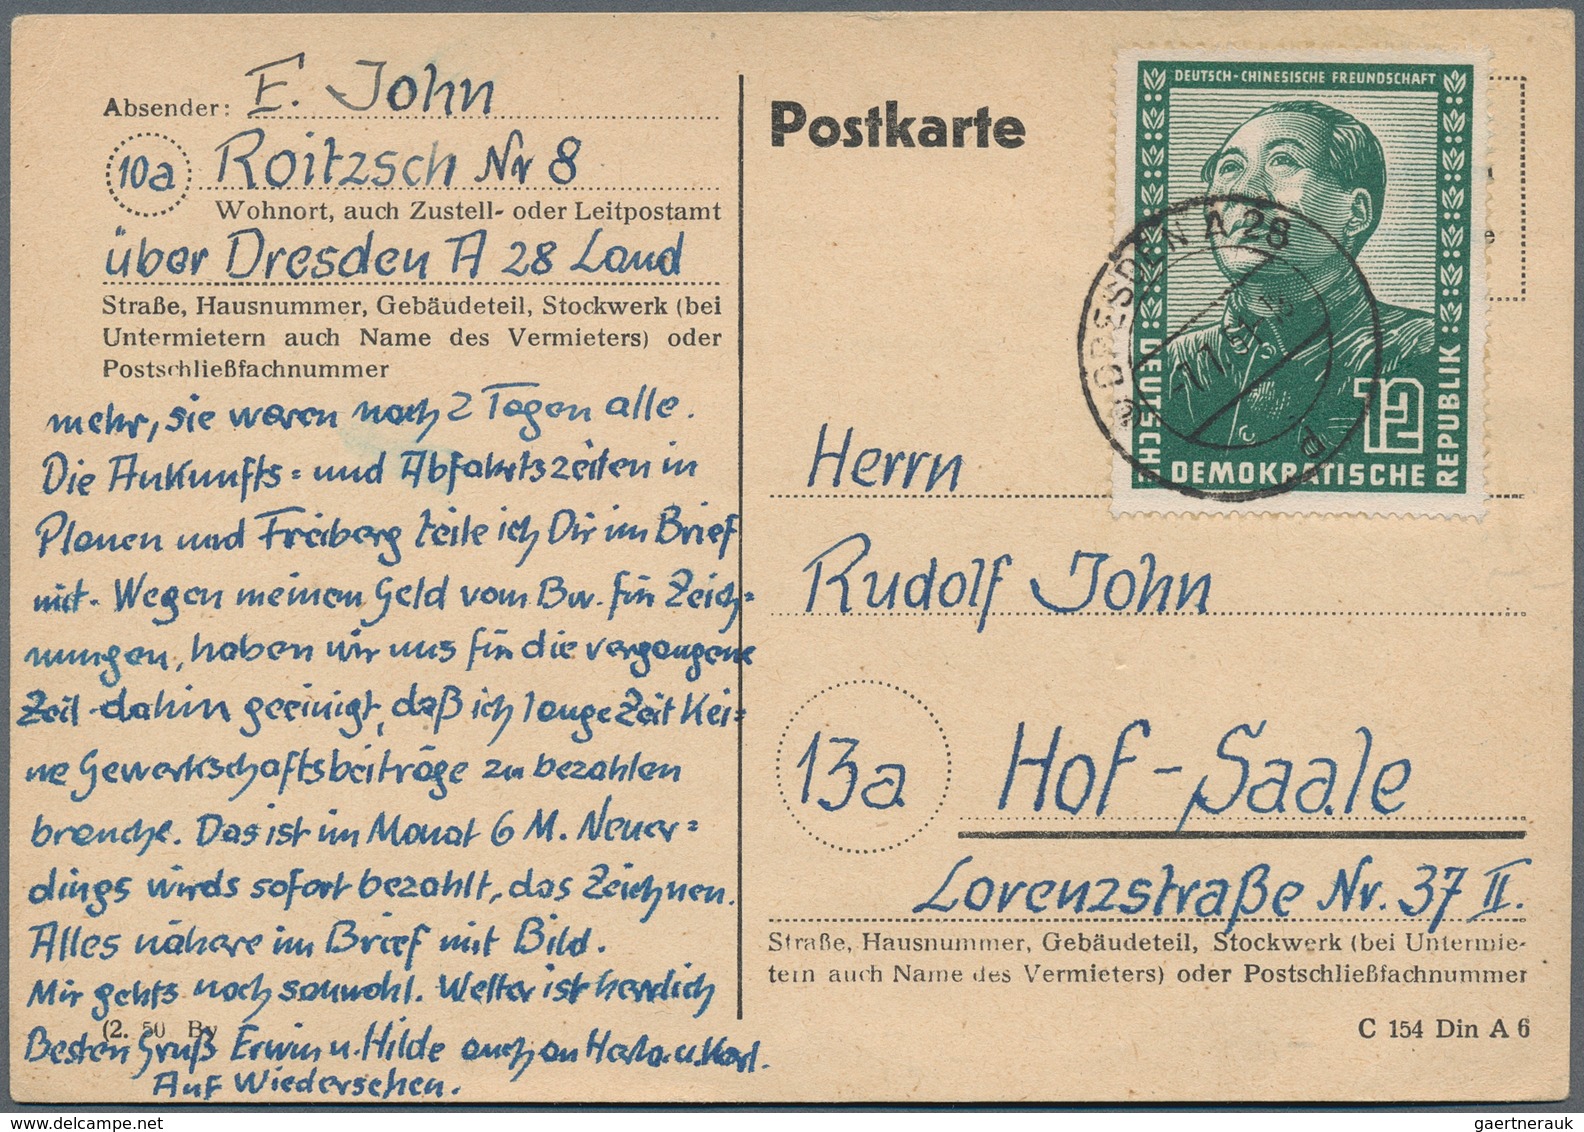 Absender: E. John
10a Roitzsch Nr 8
Wohnort, auch Zustell- oder Leitpostamt
über Dresden A 28 Land
Straße, Hausnummer, Gebäudeteil, Stockwerk (bei
Untermietern auch Name des Vermieters) oder
Postschließfachnummer
mehr, sie waren nach 2 Tagen alle.
Die Ankunfts= und Abfahrtszeiten in
Plauen und Freiberg teile ich Dir im Brief
mit. Wegen meinem Geld vom Bw. für Zeich=
nungen, haben wir uns für die vergangene
Zeit dahin geeinigt, daß ich lange Zeit kei=
ne Gewerkschaftsbeiträge zu bezahlen
brauche. Das ist im Monat 6 M. Neuer=
dings wirds sofort bezahlt, das Zeichnen.
Alles nähere im Brief mit Bild.
Mir gehts noch sauwohl. Wetter ist herrlich
(2. 50 By
Besten Gruß Erwin u. Hilde auch an Herta u. Karl.
Auf Wiedersehen.
Postkarte
DEUTSCH-CHINESISCHE FREUNDSCHAFT
12
DEUTSCHE DEMOKRATISCHE REPUBLIK
DRESDEN A 28
Herrn
Rudolf John
13a Hof-Saale
Lorenzstraße Nr. 37 II.
Straße, Hausnummer, Gebäudeteil, Stockwerk (bei Untermie-
tern auch Name des Vermieters) oder Postschließfachnummer
C 154 Din A 6
gaertnerauk